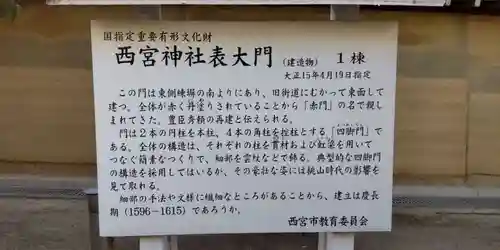 国指定重要有形文化財
西宮神社表大門 (建造物) 1棟
大正15年4月19日指定
この門は東側練塀の南よりにあり、旧街道にむかって東面して
建つ。全体が赤く丹塗りされていることから「赤門」の名で親し
まれてきた。豊臣秀頼の再建と伝えられる。
門は2本の円柱を本柱、4本の角柱を控柱とする「四脚門」で
ある。全体の構造は、それぞれの柱を貫材および虹梁を用いて
つなぐ簡素なつくりで、細部を雲肘などで飾る。典型的な四脚門
の構造を採用してはいるが、その豪壮な姿には桃山時代の影響を
見て取れる。
細部の手法や文様に繊細なところがあることから、建立は慶長
期(1596-1615)であろうか。
西宮市教育委員会